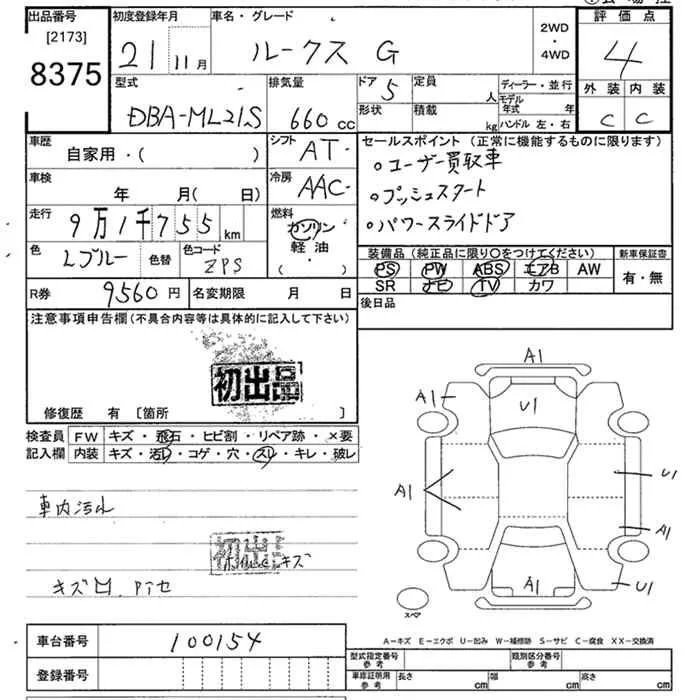 出品番号 初度登録年月 車名・グレード 2WD・4WD 評価点
[2173]
8375 21 11月 ルークス G 4
型式 排気量 ドア 5 定員 人 ディーラー・並行 外装 内装
DBA-ML21S 660cc 形状 積載 kg モデル年式 年 ハンドル 左・右 C C
車歴 自家用・( ) シフト AT・ セールスポイント(正常に機能するものに限ります)
。ユーザー買取車
車検 年 月(日) 冷房 AAC・
。プッシュスタート
走行 9万1千755km 燃料 ガソリン 軽・油 ( ・ )
。パワースライドドア
色 Lブルー 色替 色コード ZPS
装備品(純正品に限り○をつけてください) 新車保証書
PS PW ABS エアB AW 有・無
SR ナビ TV カワ
R券 9560円 名変期限 月 日 後日品
注意事項申告欄(不具合内容等は具体的に記入して下さい)
初出品
修復歴 有 [箇所 ]
検査員 FW キズ・飛石・ヒビ割・リペア跡・×要
記入欄 内装 キズ・汚レ・コゲ・穴・スレ・キレ・破レ
車内汚れ
初出 キズ
キズ
A1
A1 U1
A1 U1
A1
A1 U1
スペア
A−キズ E−エクボ U−凹み W−補修跡 S−サビ C−腐食 XX−交換済
車台番号 100154
型式指定番号 参考 類別区分番号 参考
登録番号
車庫証明用 参考 長さ cm 幅 cm 高さ cm